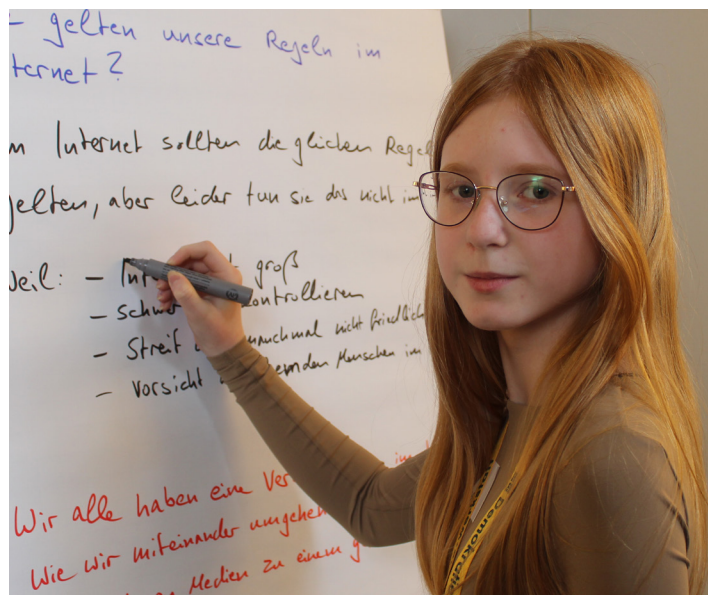 gelten unsere Regeln im
ternet?
m Internet sollten die glichen Regel
gelten, aber leider tun sie das nicht im
weil: - Int groß
- schwer kontrollieren
- Streit manchmal nicht friedlich
- Vorsicht fremden Menschen im
Wir alle haben eine Ver im
Wie wir miteinander umgehen
Medien zu einem g
Demokratie